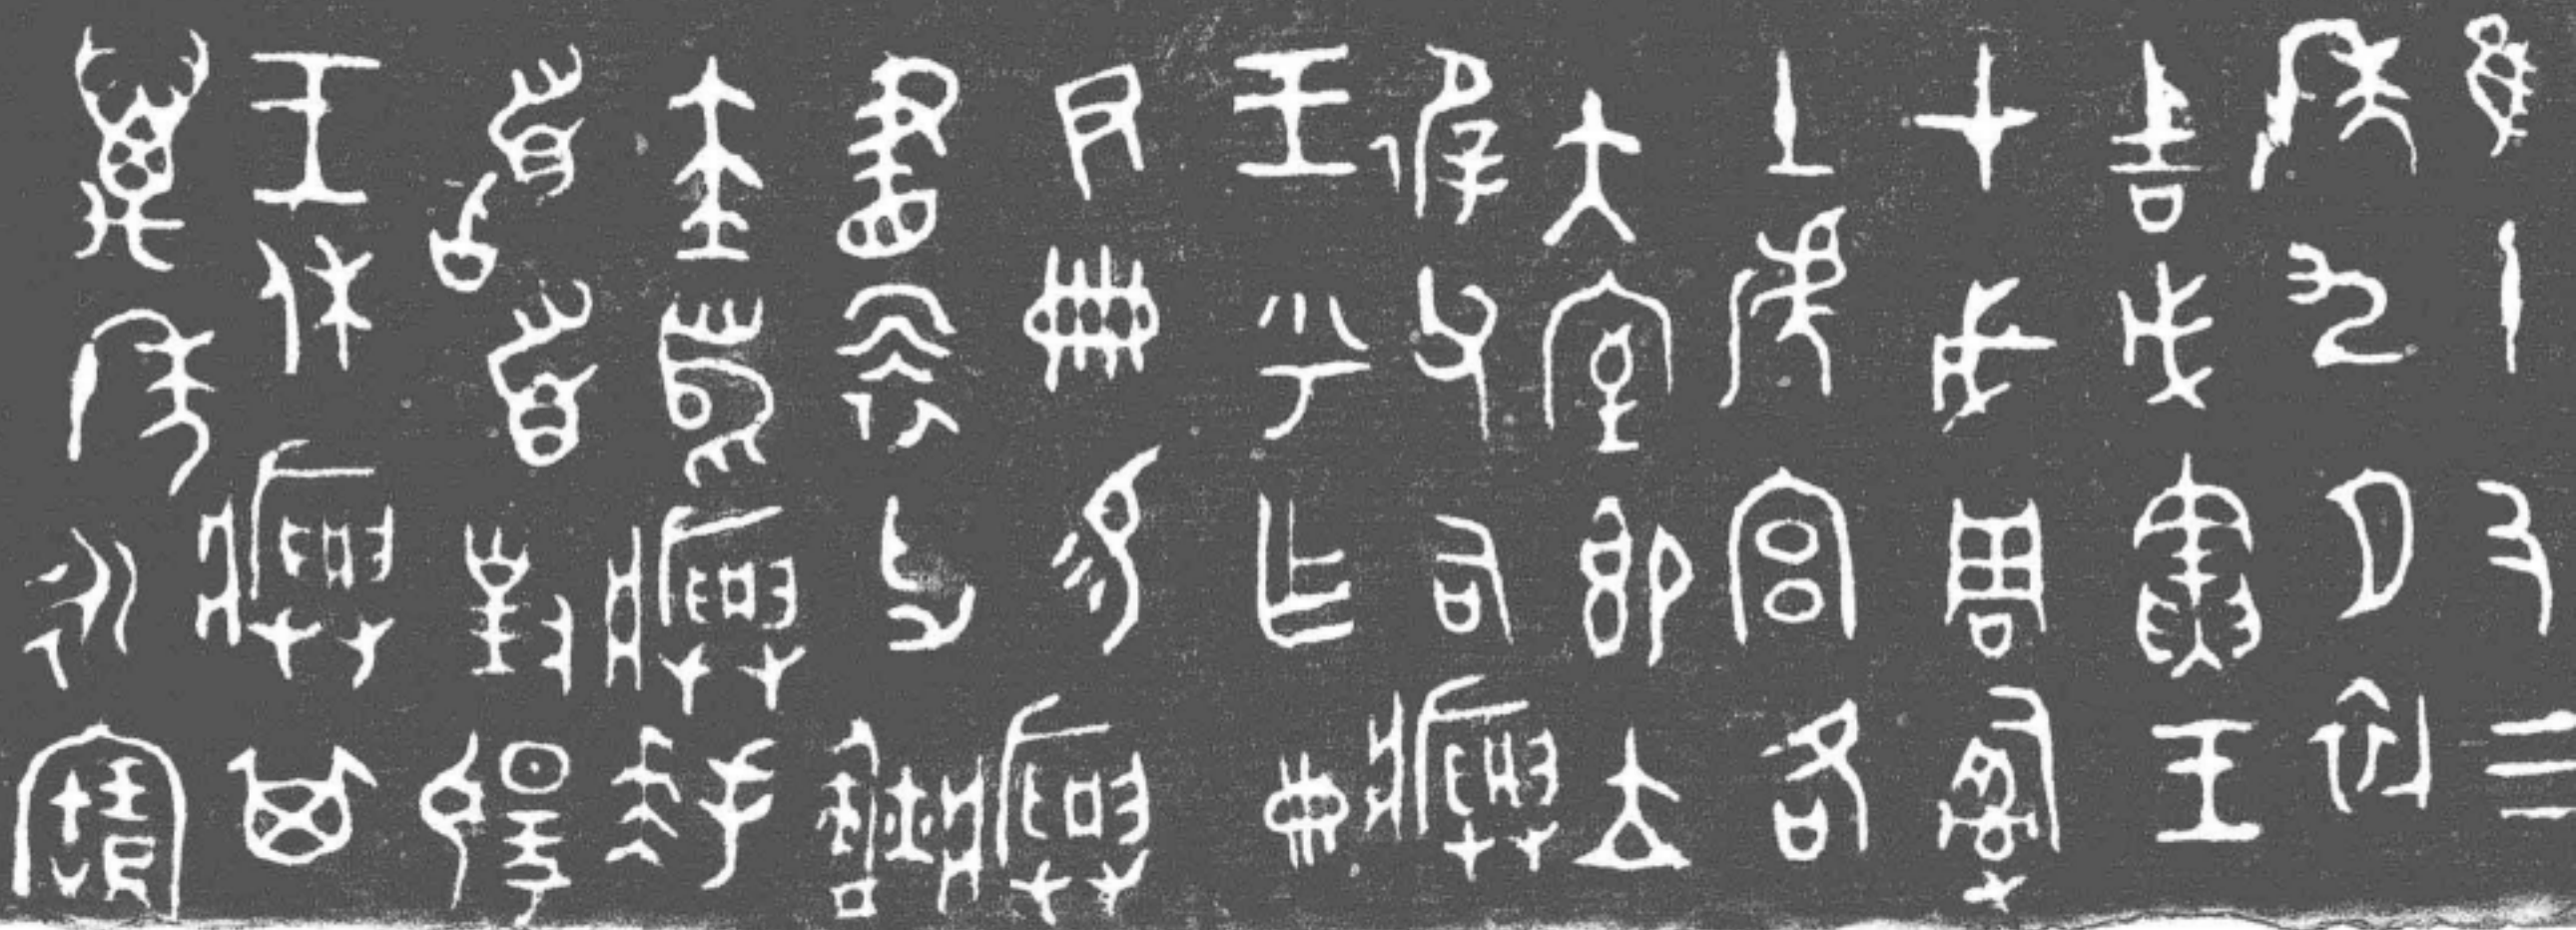 隹十又三
年九月初
吉戊寅王
才成周𤔲
土淲宮各
大室即立
徲父右𤼈
王乎乍冊
尹冊易𤼈
畫袗牙僰
赤舄𤼈拜
𩒨首對揚
王休𤼈其
萬年永寶